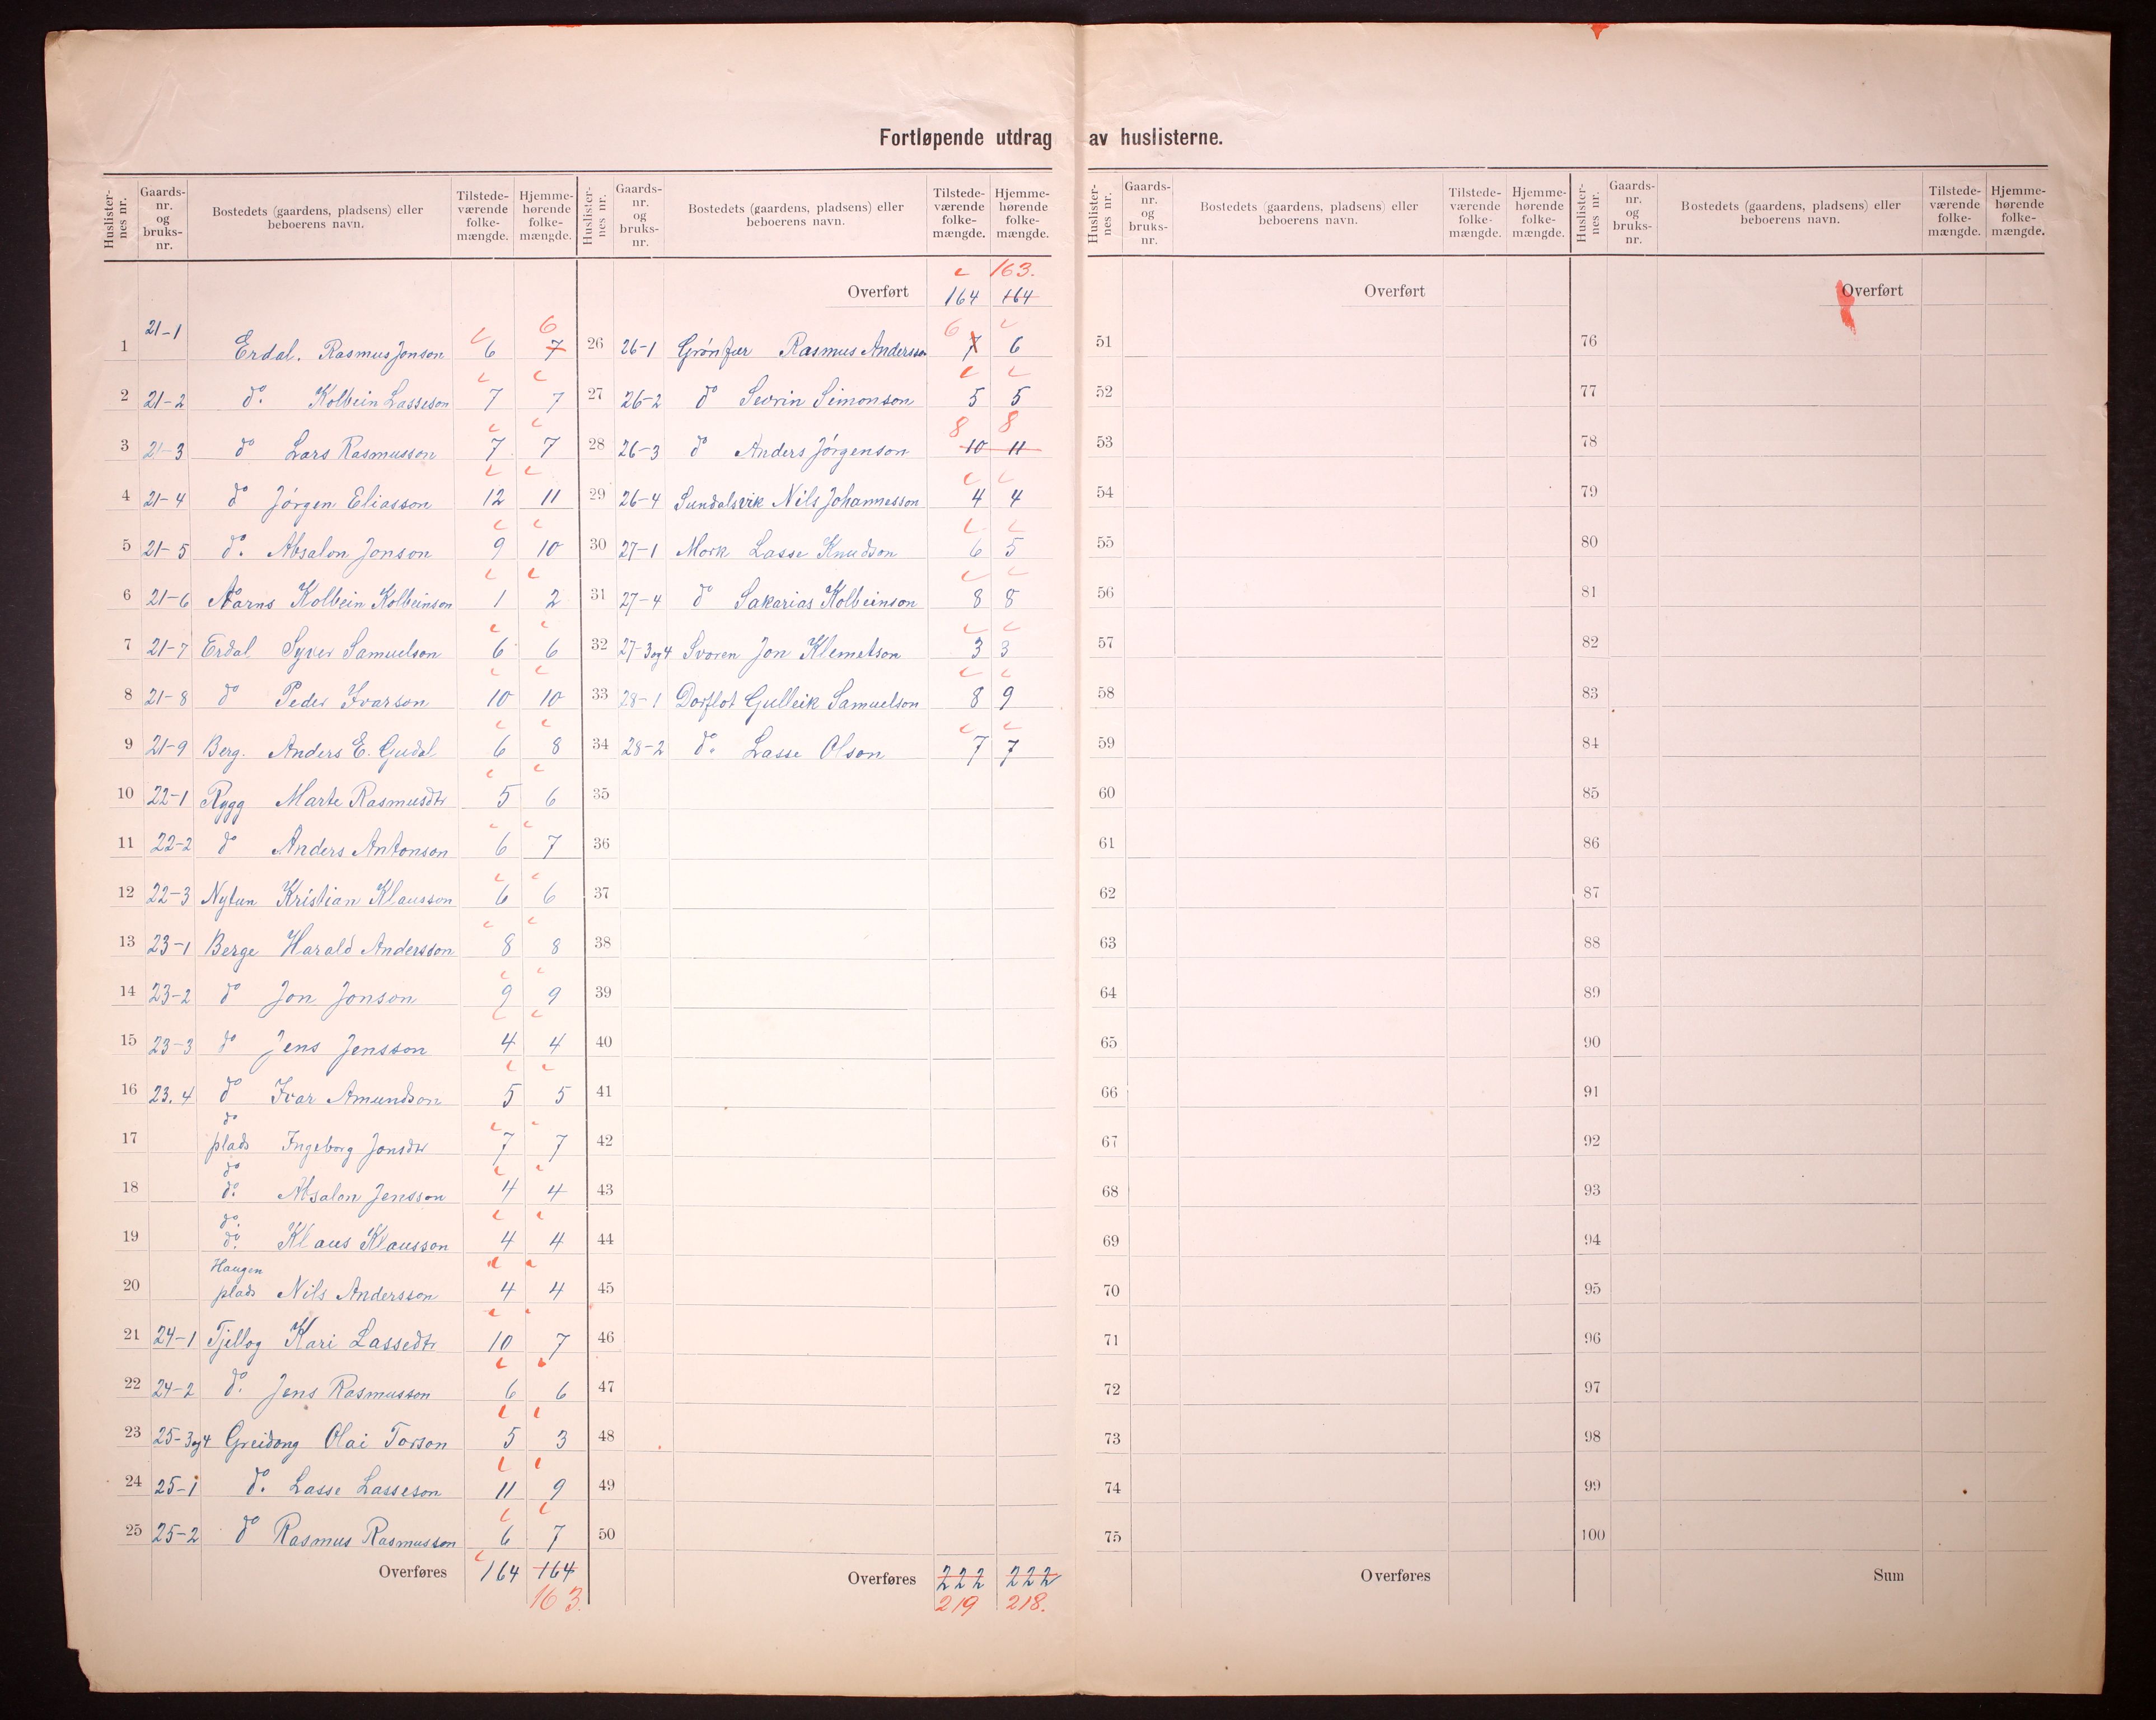 Fortløpende utdrag av huslisterne.
Huslisternes nr. Gaardsnr. og bruksnr. Bostedets (gaardens, pladsens) eller beboerens navn. Tilstedeværende folkemængde. Hjemmehørende folkemængde.
1 21-1 Erdal. Rasmus Jonson 6 7 6
2 21-2 do. Kolbein Lasseson 7 7
3 21-3 do Lars Rasmusson 7 7
4 21-4 do Jørgen Eliasson 12 11
5 21-5 do. Absalon Jonson 9 10
6 21-6 Aarns Kolbein Kolbeinson 1 2
7 21-7 Erdal Syver Samuelson 6 6
8 21-8 do Peder Ivarson 10 10
9 21-9 Berg. Anders E. Gudal 6 8
10 22-1 Rygg Marte Rasmusdtr 5 6
11 22-2 do Anders Antonson 6 7
12 22-3 Nytun Kristian Klausson 6 6
13 23-1 Berge Harald Andersson 8 8
14 23-2 do Jon Jonson 9 9
15 23-3 do Jens Jensson 4 4
16 23.4 do Ivar Amundson 5 5
17 do plads Ingeborg Jonsdtr 7 7
18 do do. Absalon Jensson 4 4
19 do. do. Klaus Klausson 4 4
20 Haugen plads Nils Andersson 4 4
21 24-1 Tjellog Kari Lassedtr 10 7
22 24-2 do. Jens Rasmusson 6 6
23 25-3og4 Greidong Olai Torson 5 3
24 25-1 do. Lasse Lasseson 11 9
25 25-2 do Rasmus Rasmusson 6 7
Overføres 164 164
163.
Huslisternes nr. Gaardsnr. og bruksnr. Bostedets (gaardens, pladsens) eller beboerens navn. Tilstedeværende folkemængde. Hjemmehørende folkemængde.
163.
Overført 164 164
26 26-1 Grønfur Rasmus Andersson 7 6 6
27 26-2 do Sevrin Simonson 5 5
28 26-3 do Anders Jørgenson 10 11 8 8
29 26-4 Sundalsvik Nils Johannesson 4 4
30 27-1 Mork Lasse Knudson 6 5
31 27-4 do Sakarias Kolbeinson 8 8
32 27-3og4 Svoren Jon Klemetson 3 3
33 28-1 Dorflot Gulleik Samuelson 8 9
34 28-2 do. Lasse Olson 7 7
35
36
37
38
39
40
41
42
43
44
45
46
47
48
49
50
Overføres 222 222
219 218.
Huslisternes nr. Gaardsnr. og bruksnr. Bostedets (gaardens, pladsens) eller beboerens navn. Tilstedeværende folkemængde. Hjemmehørende folkemængde.
Overført
51
52
53
54
55
56
57
58
59
60
61
62
63
64
65
66
67
68
69
70
71
72
73
74
75
Overføres
Huslisternes nr. Gaardsnr. og bruksnr. Bostedets (gaardens, pladsens) eller beboerens navn. Tilstedeværende folkemængde. Hjemmehørende folkemængde.
Overført
76
77
78
79
80
81
82
83
84
85
86
87
88
89
90
91
92
93
94
95
96
97
98
99
100
Sum